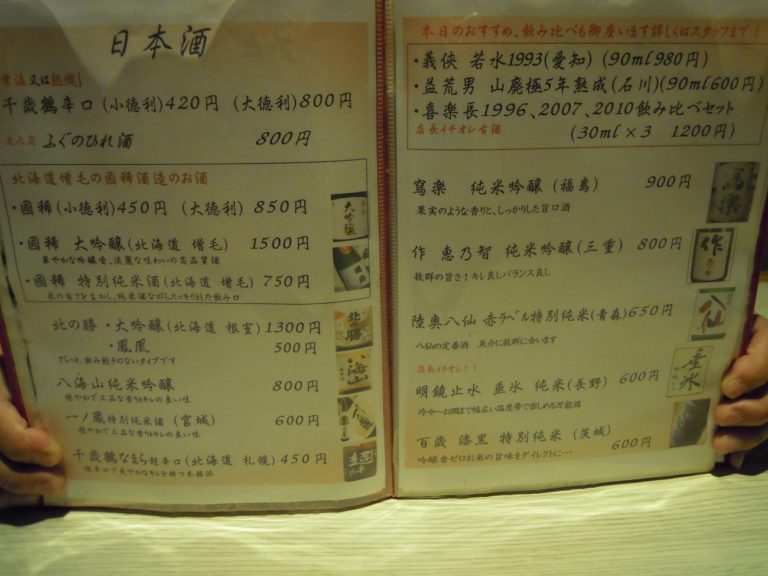 日本酒
「常温又は熱燗」
千歳鶴辛口(小徳利)420円 (大徳利)800円
ふぐのひれ酒 800円
北海道増毛の國稀酒造のお酒
・國稀(小徳利)450円 (大徳利) 850円
・國稀 大吟醸(北海道 増毛) 1500円
華やかな吟醸香、淡麗な味わいの高品質酒
・國稀 特別純米酒(北海道 増毛) 750円
米の旨さを生かし、純米酒ながらスッキリとした飲み口
北の勝・大吟醸(北海道 根室)1300円
・鳳凰 500円
さらっと、飲み飽きのないタイプです
八海山純米吟醸 800円
穏やかで上品な香りとキレの良い味
一ノ蔵特別純米酒 (宮城) 600円
穏やかで上品な香りとキレの良い味
千歳鶴なまら超辛口(北海道 札幌) 450円
超辛口で爽やかなキレを持つ本格派
本日のおすすめ、飲み比べも御座います詳しくはスタッフまで!
・義侠 若水1993(愛知) (90ml 980円)
・益荒男 山廃極5年熟成(石川)(90ml600円)
・喜楽長1996、2007、2010飲み比べセット
店長イチオシ古酒 (30ml×3 1200円)
寫楽 純米吟醸 (福島) 900円
果実のような香りと、しっかりした旨口酒
寫楽
作 恵乃智 純米吟醸(三重) 800円
抜群の旨さ!キレ良しバランス良し
作
陸奥八仙 赤ラベル特別純米(青森)650円
八仙の定番酒 魚介に抜群に合います
八仙
店長イチオシ!!
明鏡止水 垂氷 純米(長野) 600円
冷や~お燗まで幅広い温度帯で楽しめる万能酒
垂氷
百歳 漆黒 特別純米 (茨城) 600円
吟醸香ゼロお米の旨味をダイレクトに…